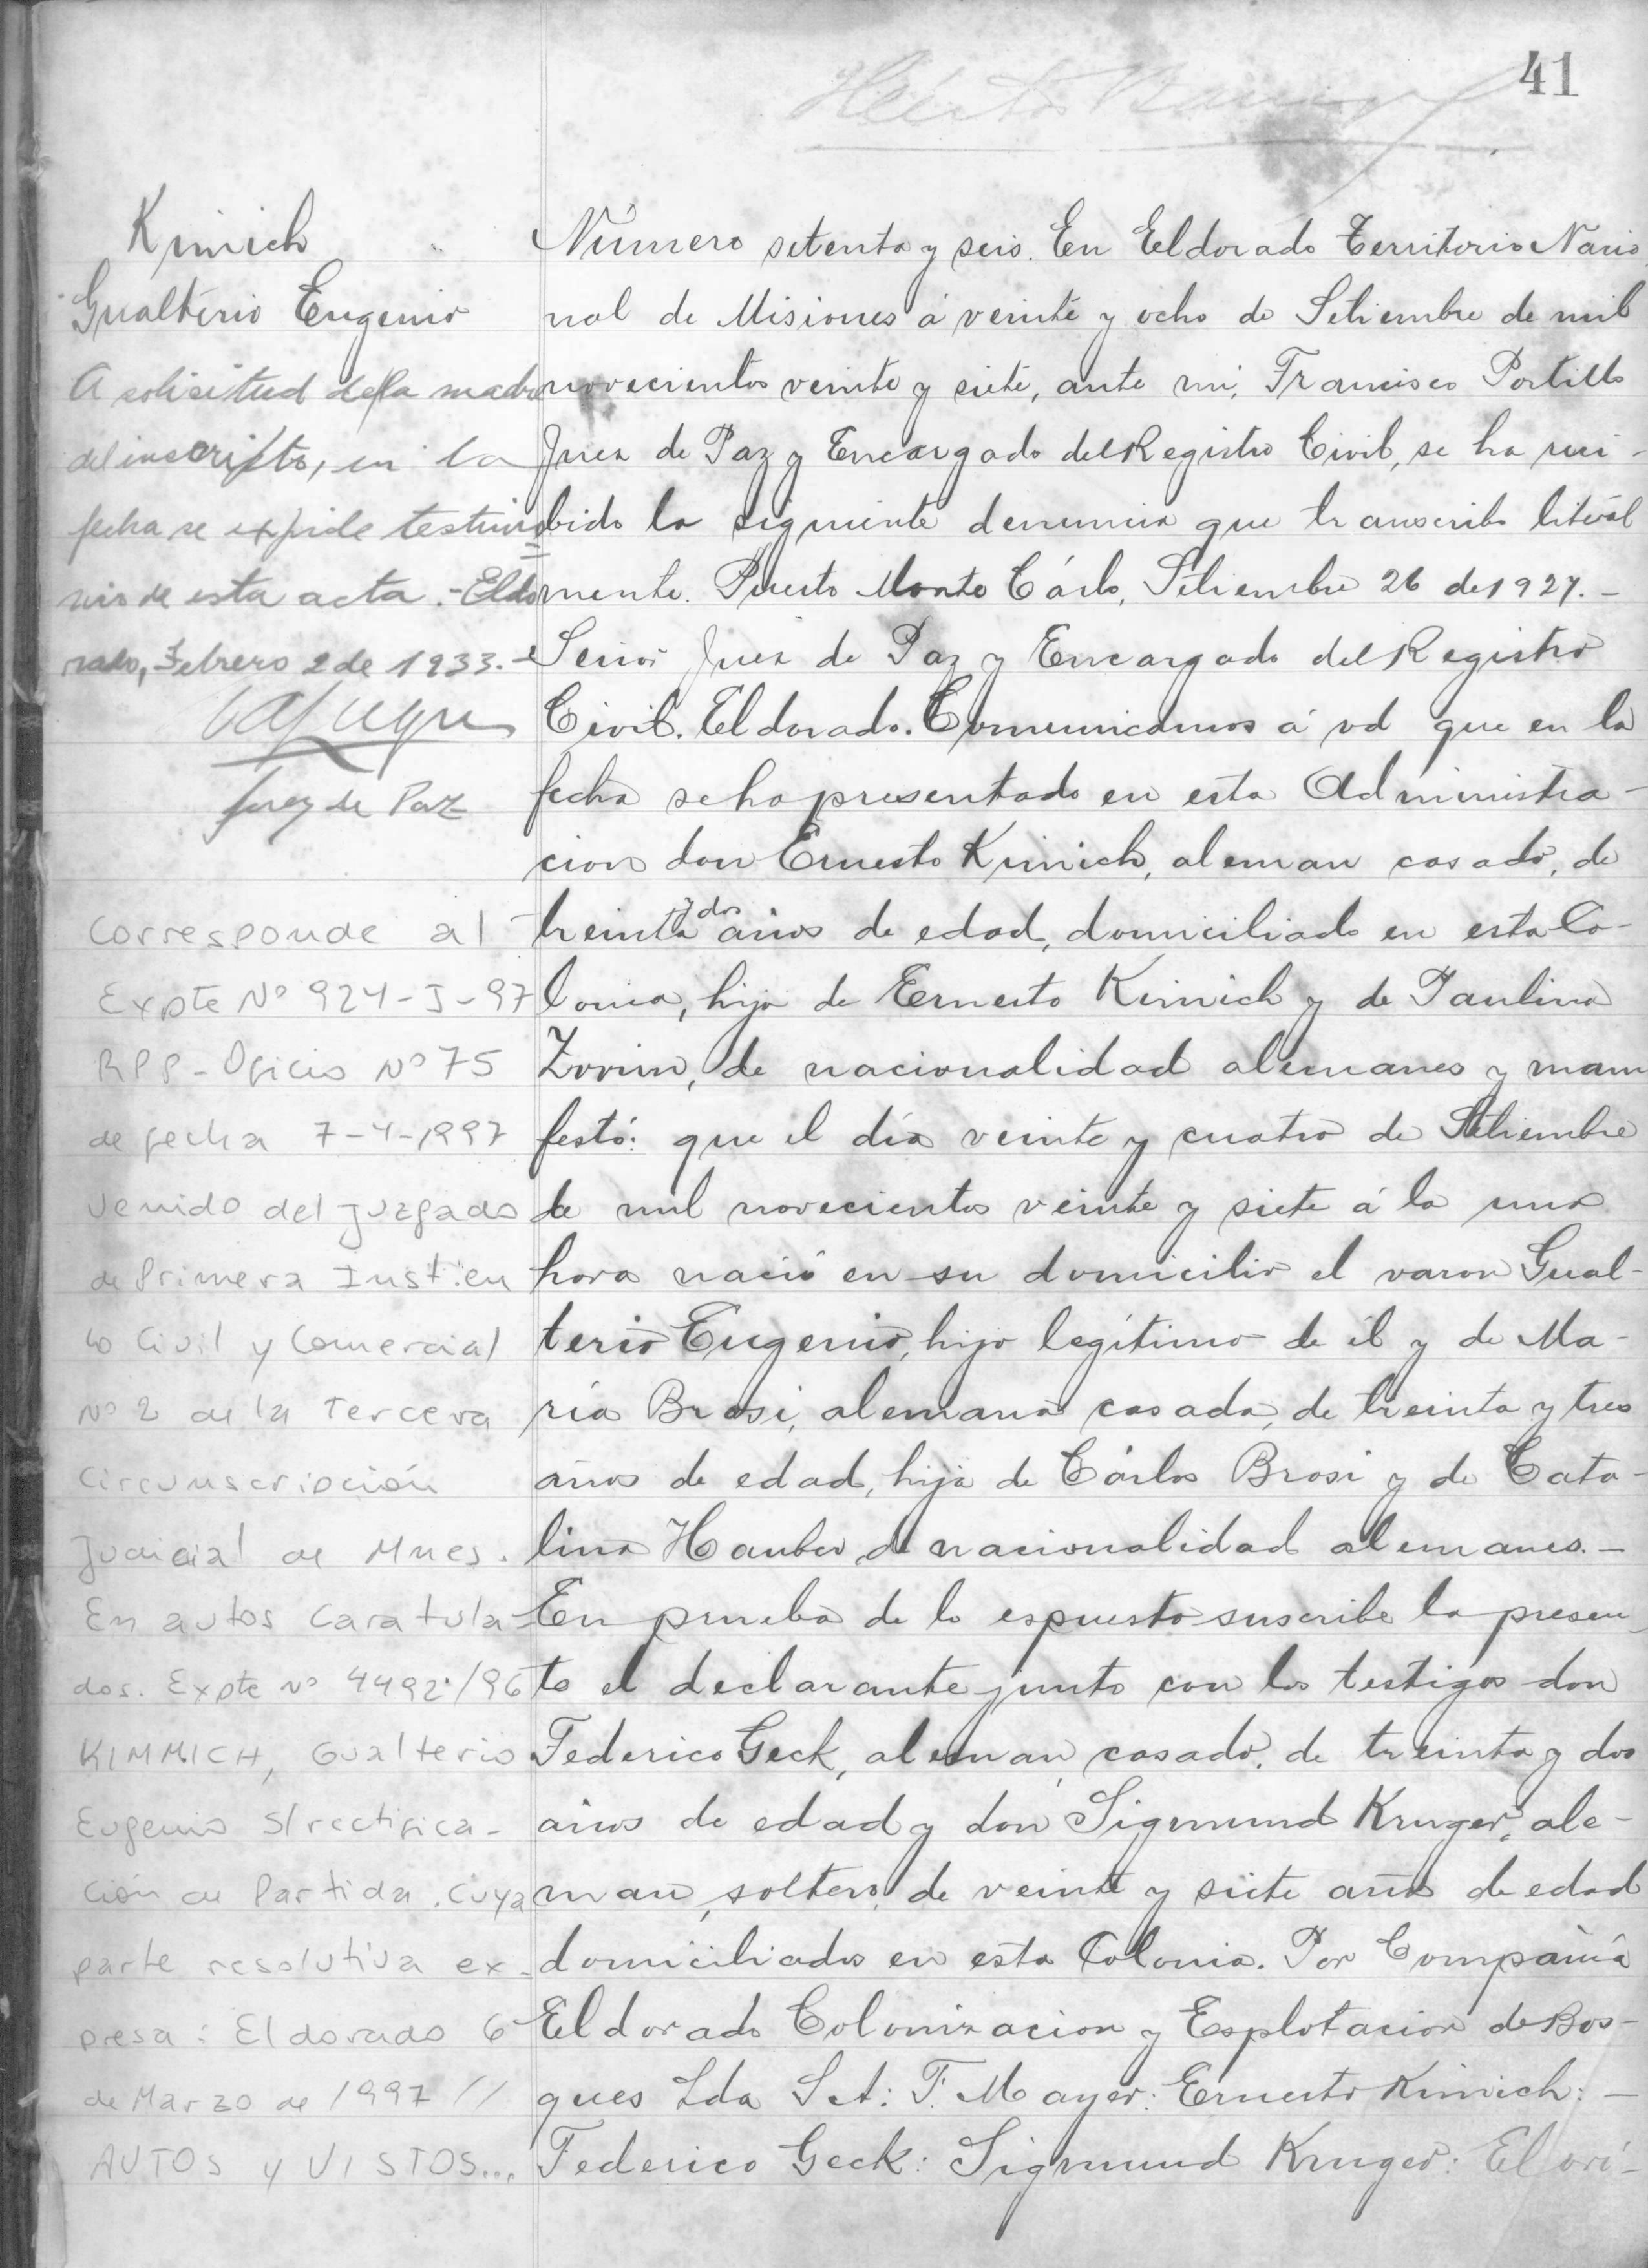 41
Kimich
Gualterio Eugenio
A solicitud de la madre
del inscripto, en la
fecha se expide testimo=
nio de esta acta.-Eldo
rado, Febrero 2 de 1933.-
Juez de Paz
Corresponde al
Expte Nº 924-J-97
RPP-Oficio Nº 75
de fecha 7-4-1997
venido del Juzgado
de Primera Inst. en
lo Civil y Comercial
Nº 2 de la Tercera
Circunscripción
Judicial de Mnes.
En autos Caratula-
dos. Expte nº 4492/96
KIMMICH, Gualterio
Eugenio S/rectifica-
ción de Partida. Cuya
parte resolutiva ex-
presa: Eldorado 6
de Marzo de 1997 //
AUTOS y VISTOS...
Número setenta y seis. En Eldorado Territorio Nacio
nal de Misiones á veinte y ocho de Setiembre de mil
novecientos veinte y siete, ante mi, Francisco Portillo
Juez de Paz y Encargado del Registro Civil, se ha reci-
bido la siguiente denuncia que transcribo literal
mente. Puerto Monte Cárlo, Setiembre 26 de 1927.-
Señor Juez de Paz y Encargado del Registro
Civil. Eldorado. Comunicamos á vd que en la
fecha se ha presentado en esta Administra-
cion don Ernesto Kimich, aleman casado, de
treinta y dos años de edad, domiciliado en esta Co-
lonia, hijo de Ernesto Kimich y de Paulina
de nacionalidad alemanes y mani
festó: que el día veinte y cuatro de Setiembre
de mil novecientos veinte y siete á la una
hora nació en su domicilio el varon Gual-
terio Eugenio, hijo legítimo de él y de Ma-
ría Brosi, alemana casada, de treinta y tres
años de edad, hija de Cárlos Brosi y de Cata-
lina Hauber de nacionalidad alemanes.-
En prueba de lo espuesto suscribe la presen
te el declarante junto con los testigos don
Federico Geck, aleman, casado, de treinta y dos
años de edad y don Sigmund Kruger, ale-
man, soltero, de veinte y siete años de edad
domiciliados en esta Colonia. Por Compañia
Eldorado Colonizacion y Esplotacion de Bos-
ques Lda Set: F. Mayer: Ernesto Kimich:-
Federico Geck: Sigmund Kruger: El ori-